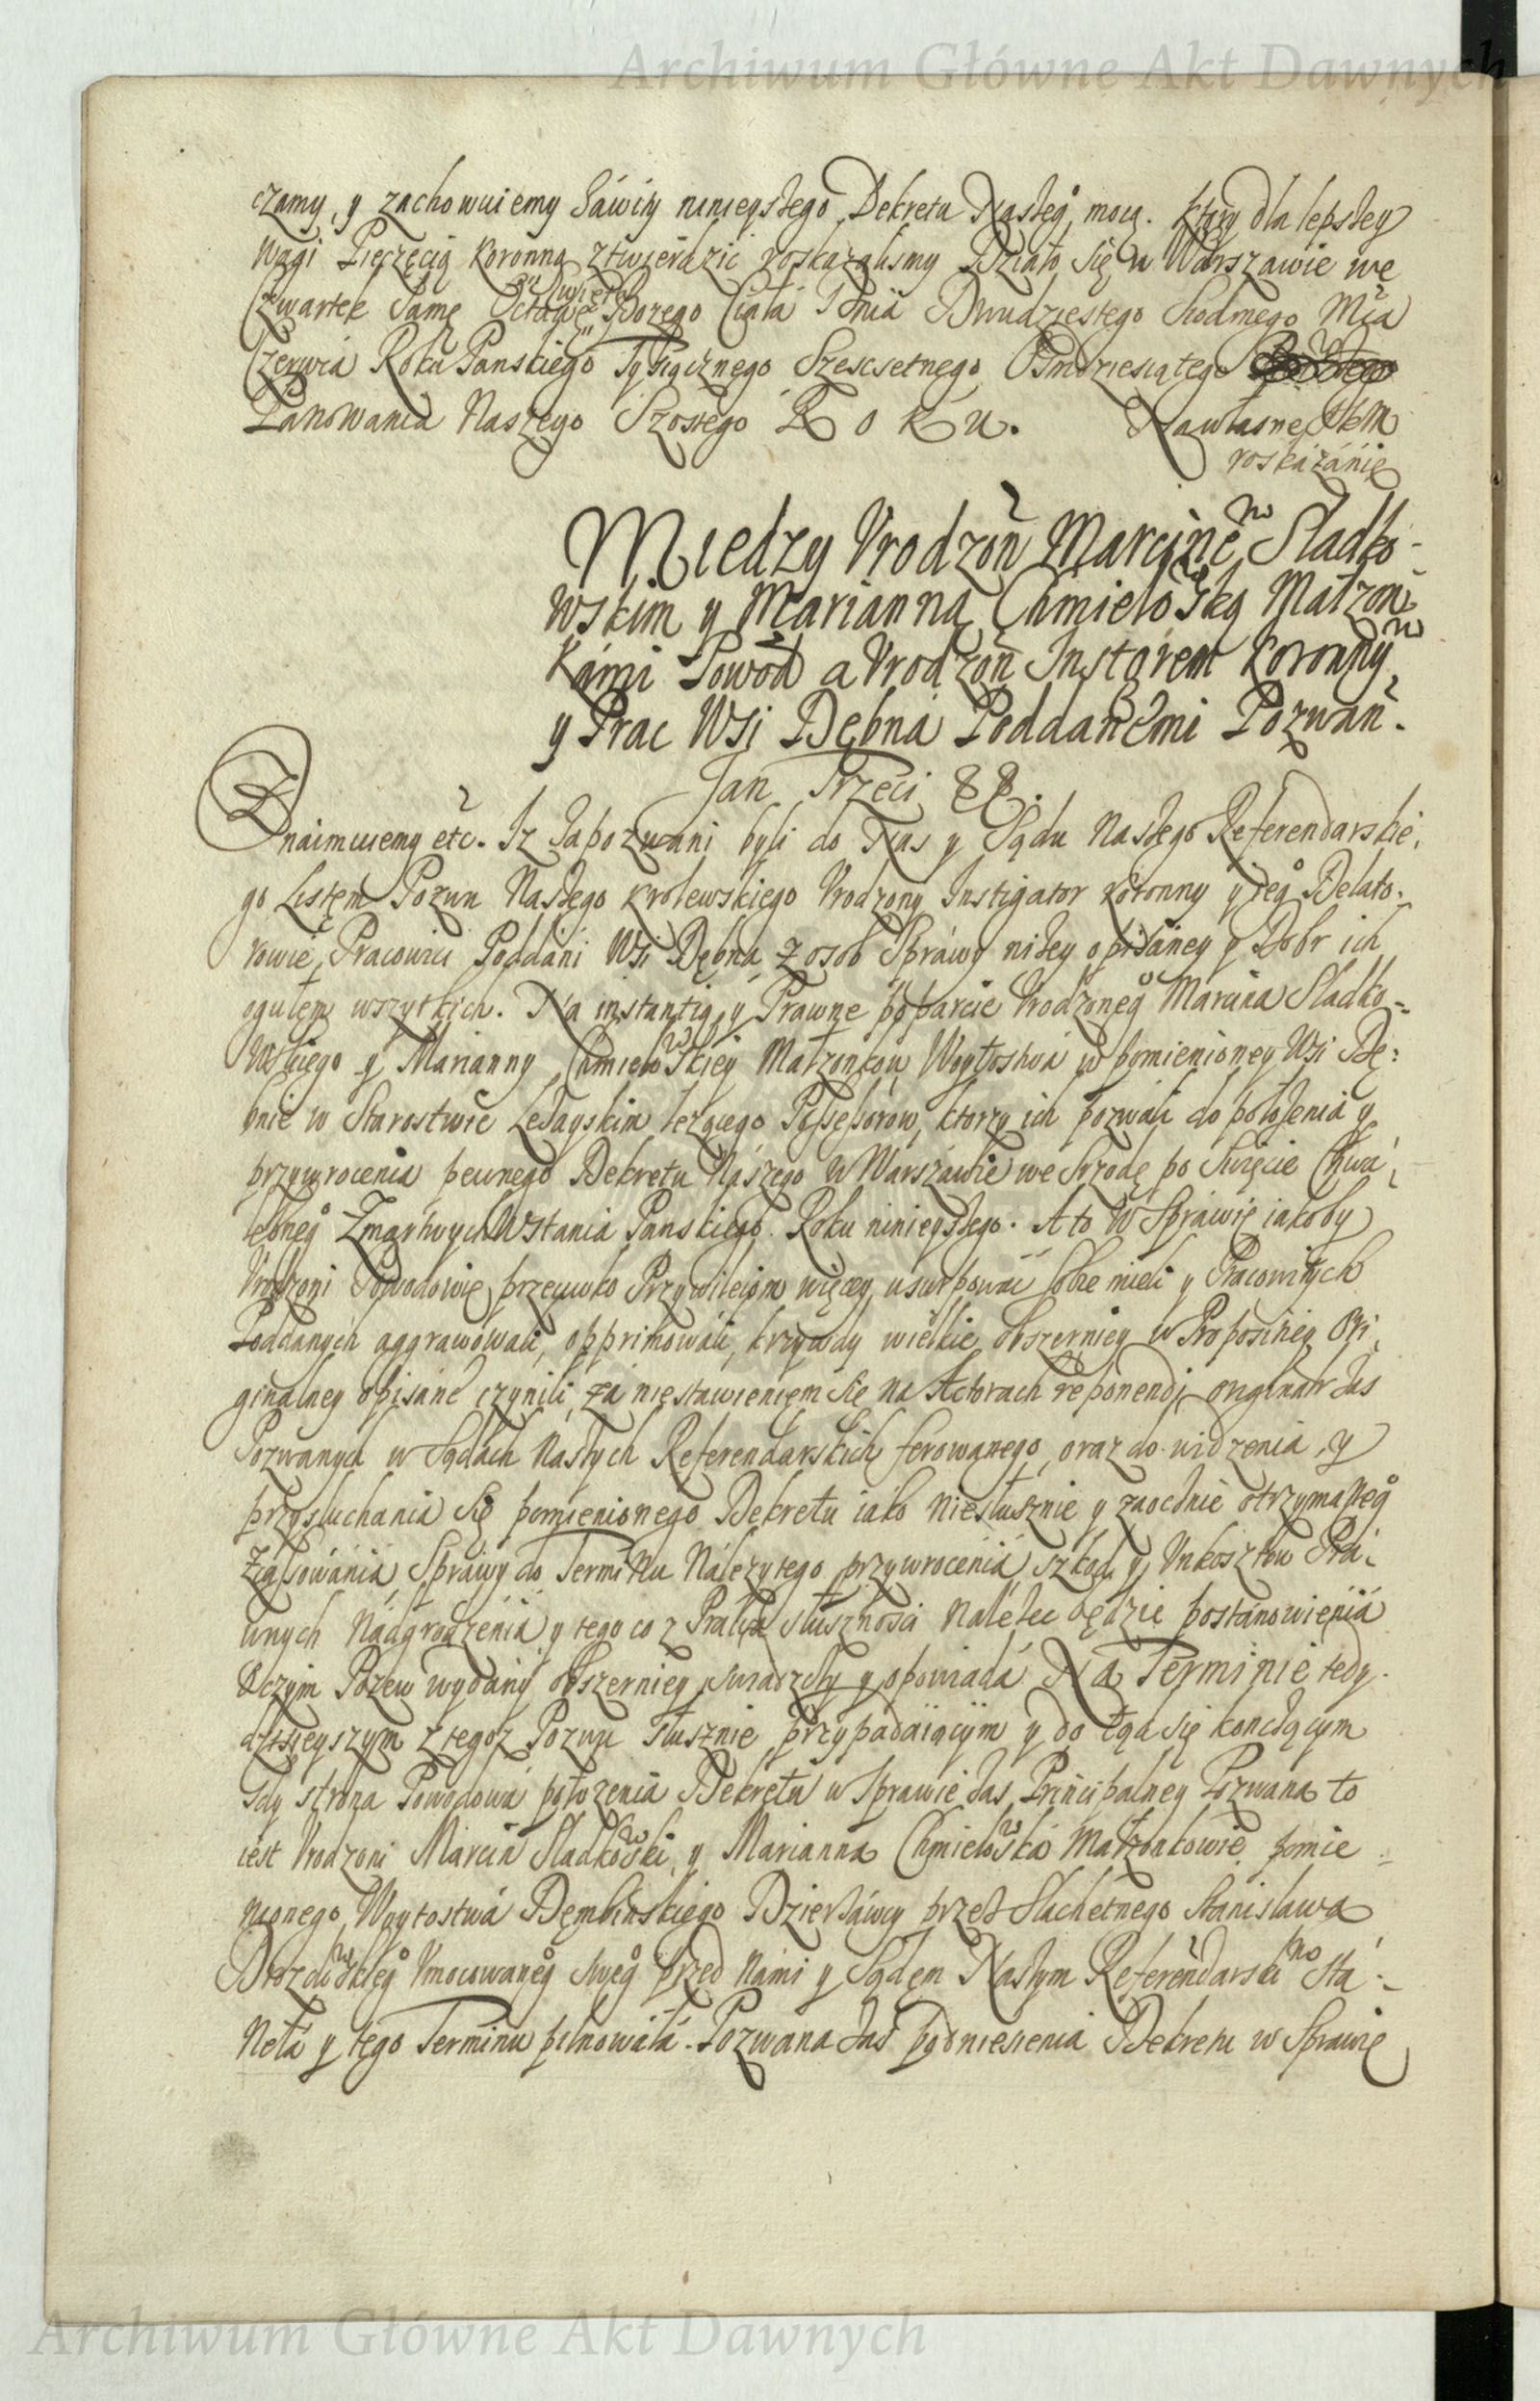 Archiwum Główne Akt Dawnych
czamy, y zachowuiemy Sáwity ninieyszego Dekretu Naszeg̊ mocą. Ktory dla lepszey
wagi Pieczęcią Koronną ztwierdzić roskazalismy Działo się w Warszawie we
Czwartek Samę Octawę Swięta Bozego Ciała Dniá Dwudziestego Siodmego Mca
Czerwca Roku Panskiego Tysiącznego Szescsetnego Osmdziesiątego
Panowania Naszego Szostego Roku. Nawłasne JKM
roskázánie
Miedzy Vrodzon Marcinem Sladko-
wskim y Marianną Chmielowską Małzon-
kámi Powod a Vrodzon Instorem Koronnym
y Prac Wsi Dębná Poddanemi Pozwan.
Jan Trzeci &&.
Znaimuiemy etc. Iz Zapozwani byli do Nas y Sądu Naszego Referendarskie,
go Listem Pozwu Naszego Krolewskiego Vrodzony Instigator Koronny y ieg̊ Delato-
rowie, Pracowici Poddáni Wsi Dębná z osob Spráwy niżey opisáney y Dobr ich
ogułem wszytkich. Ná instantią y Prawne poparcie Vrodzoneg̊ Marcina Sladko-
wskiego y Marianny Chmielowskiey Małzonkow Woytostwá w pomienioney Wsi Dę-
bnie w Starostwie Leżayskim lezącego Possessorow, ktorzy ich pozwali do położenia y
przywrocenia pewnego Dekretu Nászego w Wárszáwie we Srzodę po Swięcie Chwá-
lebneg̊ Zmartwychwstania Panskiego Roku ninieyszego. A to w Spráwie iakoby
Vrodzoni Powodowie przeciwko Przywileiom więcey usurpowáć sobie mieli y Pracowitych
Poddanych aggrawowali, opprimowali, krzywdy wielkie obszerniey w Propositiey Ori-
ginalney opisáne czynili, zá niestawieniem się na Actorach reponendi originału zas
Pozwanych w Sądách Naszych Referendarskich ferowanego, oraz do widzenia y
przysłuchania się pomienionego Dekretu iáko niesłusznie y zaocznie otrzymaneg̊
Zkassowánia Spráwy do Terminu Nálezytego przywrocenia szkod y Vnkosztow Prá-
wnych Nádgrodzenia y tego co z Prawa słuszności należec będzie postánowienia
O czym Pozew wydány obszerniey swiadczy y opowiadá Ná Terminie tedy
dzisieyszym z tegoz Pozwu słusznie przypadáiącym y do tąd się konczącym
Gdy strona Powodowá położenia Dekretu w Sprawie zas Principalney Pozwana to
iest Vrodzoni Márcin Sladkowski y Marianna Chmielowská Małzonkowie pomie-
nionego Woytostwá Dęmbinskiego Dzierżáwcy przez Slachetnego Stanislawa
Drozdowskieg̊ Vmocowaneg̊ sweg̊ przed Námi y Sądem Naszym Referendarskim stá-
nełá y tego Terminu pilnowáłá. Pozwana zas podniesienia Dekretu w Sprawie
Archiwum Główne Akt Dawnych